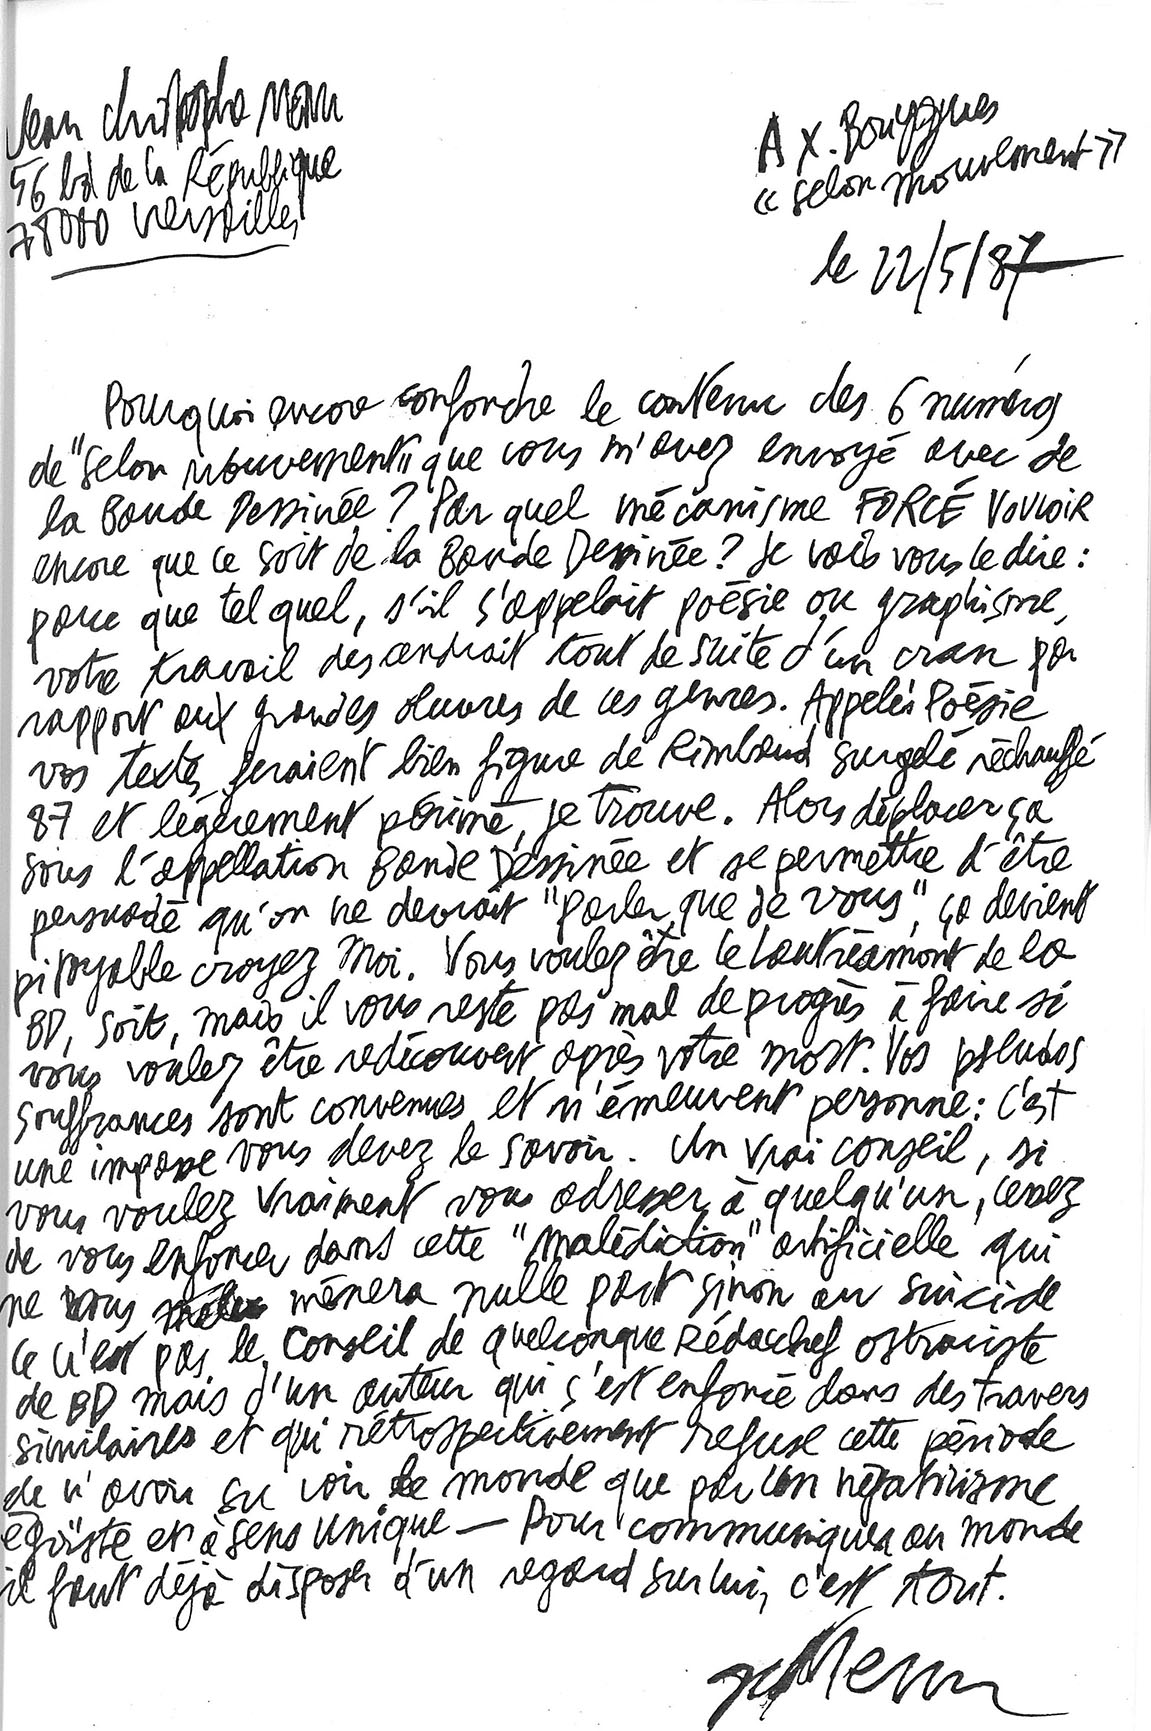 Jean Christophe Menu
56 bd de la République
78000 Versailles
A X. Bouyggues
« selon mouvement »
le 22/5/87
Pourquoi encore confondre le contenu des 6 numéros
de "selon mouvement" que vous m'avez envoyé avec de
la Bande Dessinée ? Par quel mécanisme FORCÉ VOULOIR
encore que ce soit de la Bande Dessinée ? Je vais vous le dire :
parce que tel quel, s'il s'appelait poésie ou graphisme,
votre travail descendrait tout de suite d'un cran par
rapport aux grandes oeuvres de ces genres. Appelés Poésie
vos textes feraient bien figure de Rimbaud surgelé réchauffé
87 et légèrement périmé, je trouve. Alors déplacer ça
sous l'appellation Bande Dessinée et se permettre d'être
persuadé qu'on ne devrait "parler que de vous", ça devient
pitoyable croyez moi. Vous voulez être le Lautréamont de la
BD, soit, mais il vous reste pas mal de progrès à faire si
vous voulez être redécouvert après votre mort. Vos pseudos
souffrances sont convenues et n'émeuvent personne : c'est
une impasse vous devez le savoir. Un vrai conseil, si
vous voulez vraiment vous adresser à quelqu'un, cessez
de vous enfoncer dans cette "malédiction" artificielle qui
ne vous mènera nulle part sinon au suicide
ce n'est pas le conseil de quelconque Rédachef ostraciste
de BD mais d'un auteur qui s'est enfoncé dans des travers
similaires et qui rétrospectivement refuse cette période
de n'avoir su voir le monde que par un négativisme
égoïste et à sens unique — Pour communiquer au monde
il faut déjà disposer d'un regard sur lui, c'est tout.
JC Menu